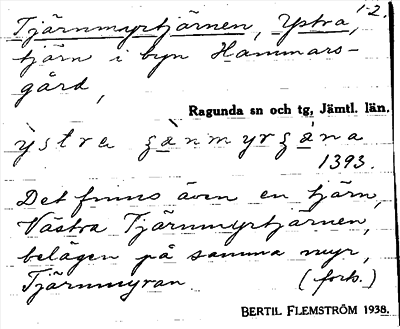 1-2.
Tjärnmyrtjärnen, Ystra,
tjärn i byn Hammars-
gård,
Ragunda sn och tg, Jämtl. län.
1393.
Det finns även en tjärn,
Västra Tjärnmyrtjärnen,
belägen på samma myr,
Tjärnmyran. (forts.)
BERTIL FLEMSTRÖM 1938.